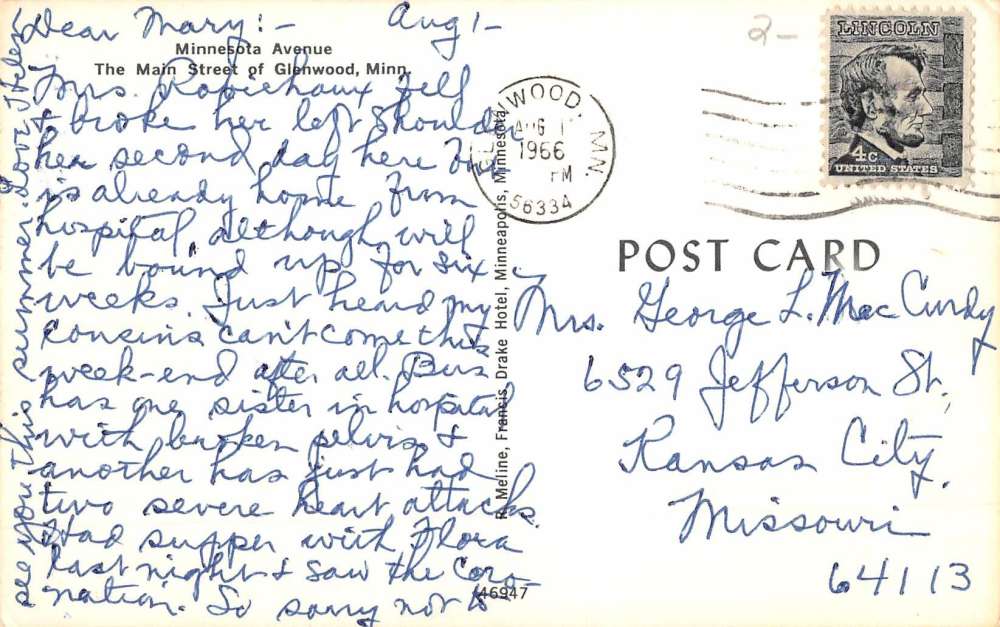 Dear Mary:- Aug 1-
Minnesota Avenue
The Main Street of Glenwood, Minn.
Mrs. Robichaux fell
& broke her left shoulder
her second day here
is already home from
hospital, although will
be bound up for six
weeks. Just heard my
cousins can't come this
week-end after all. Bus
has one sister in hospital
with broken pelvis &
another has just had
two severe heart attacks.
Had supper with Flora
last night & saw the Coro-
nation. So sorry not to
see you this summer. Love Helen
R. Meline, Francis Drake Hotel, Minneapolis, Minnesota
46947
2-
GLENWOOD, MN.
AUG 1
1966
PM
56334
LINCOLN
4c
UNITED STATES
POST CARD
Mrs. George L. MacCurdy
6529 Jefferson St.,
Kansas City,
Missouri
64113